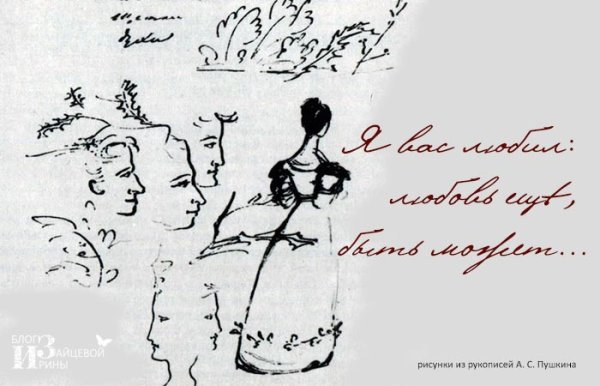 Я вас любил:
любовь ещё,
быть может...
БЛОГ
ЗАЙЦЕВОЙ
ИРИНЫ
рисунки из рукописей А. С. Пушкина